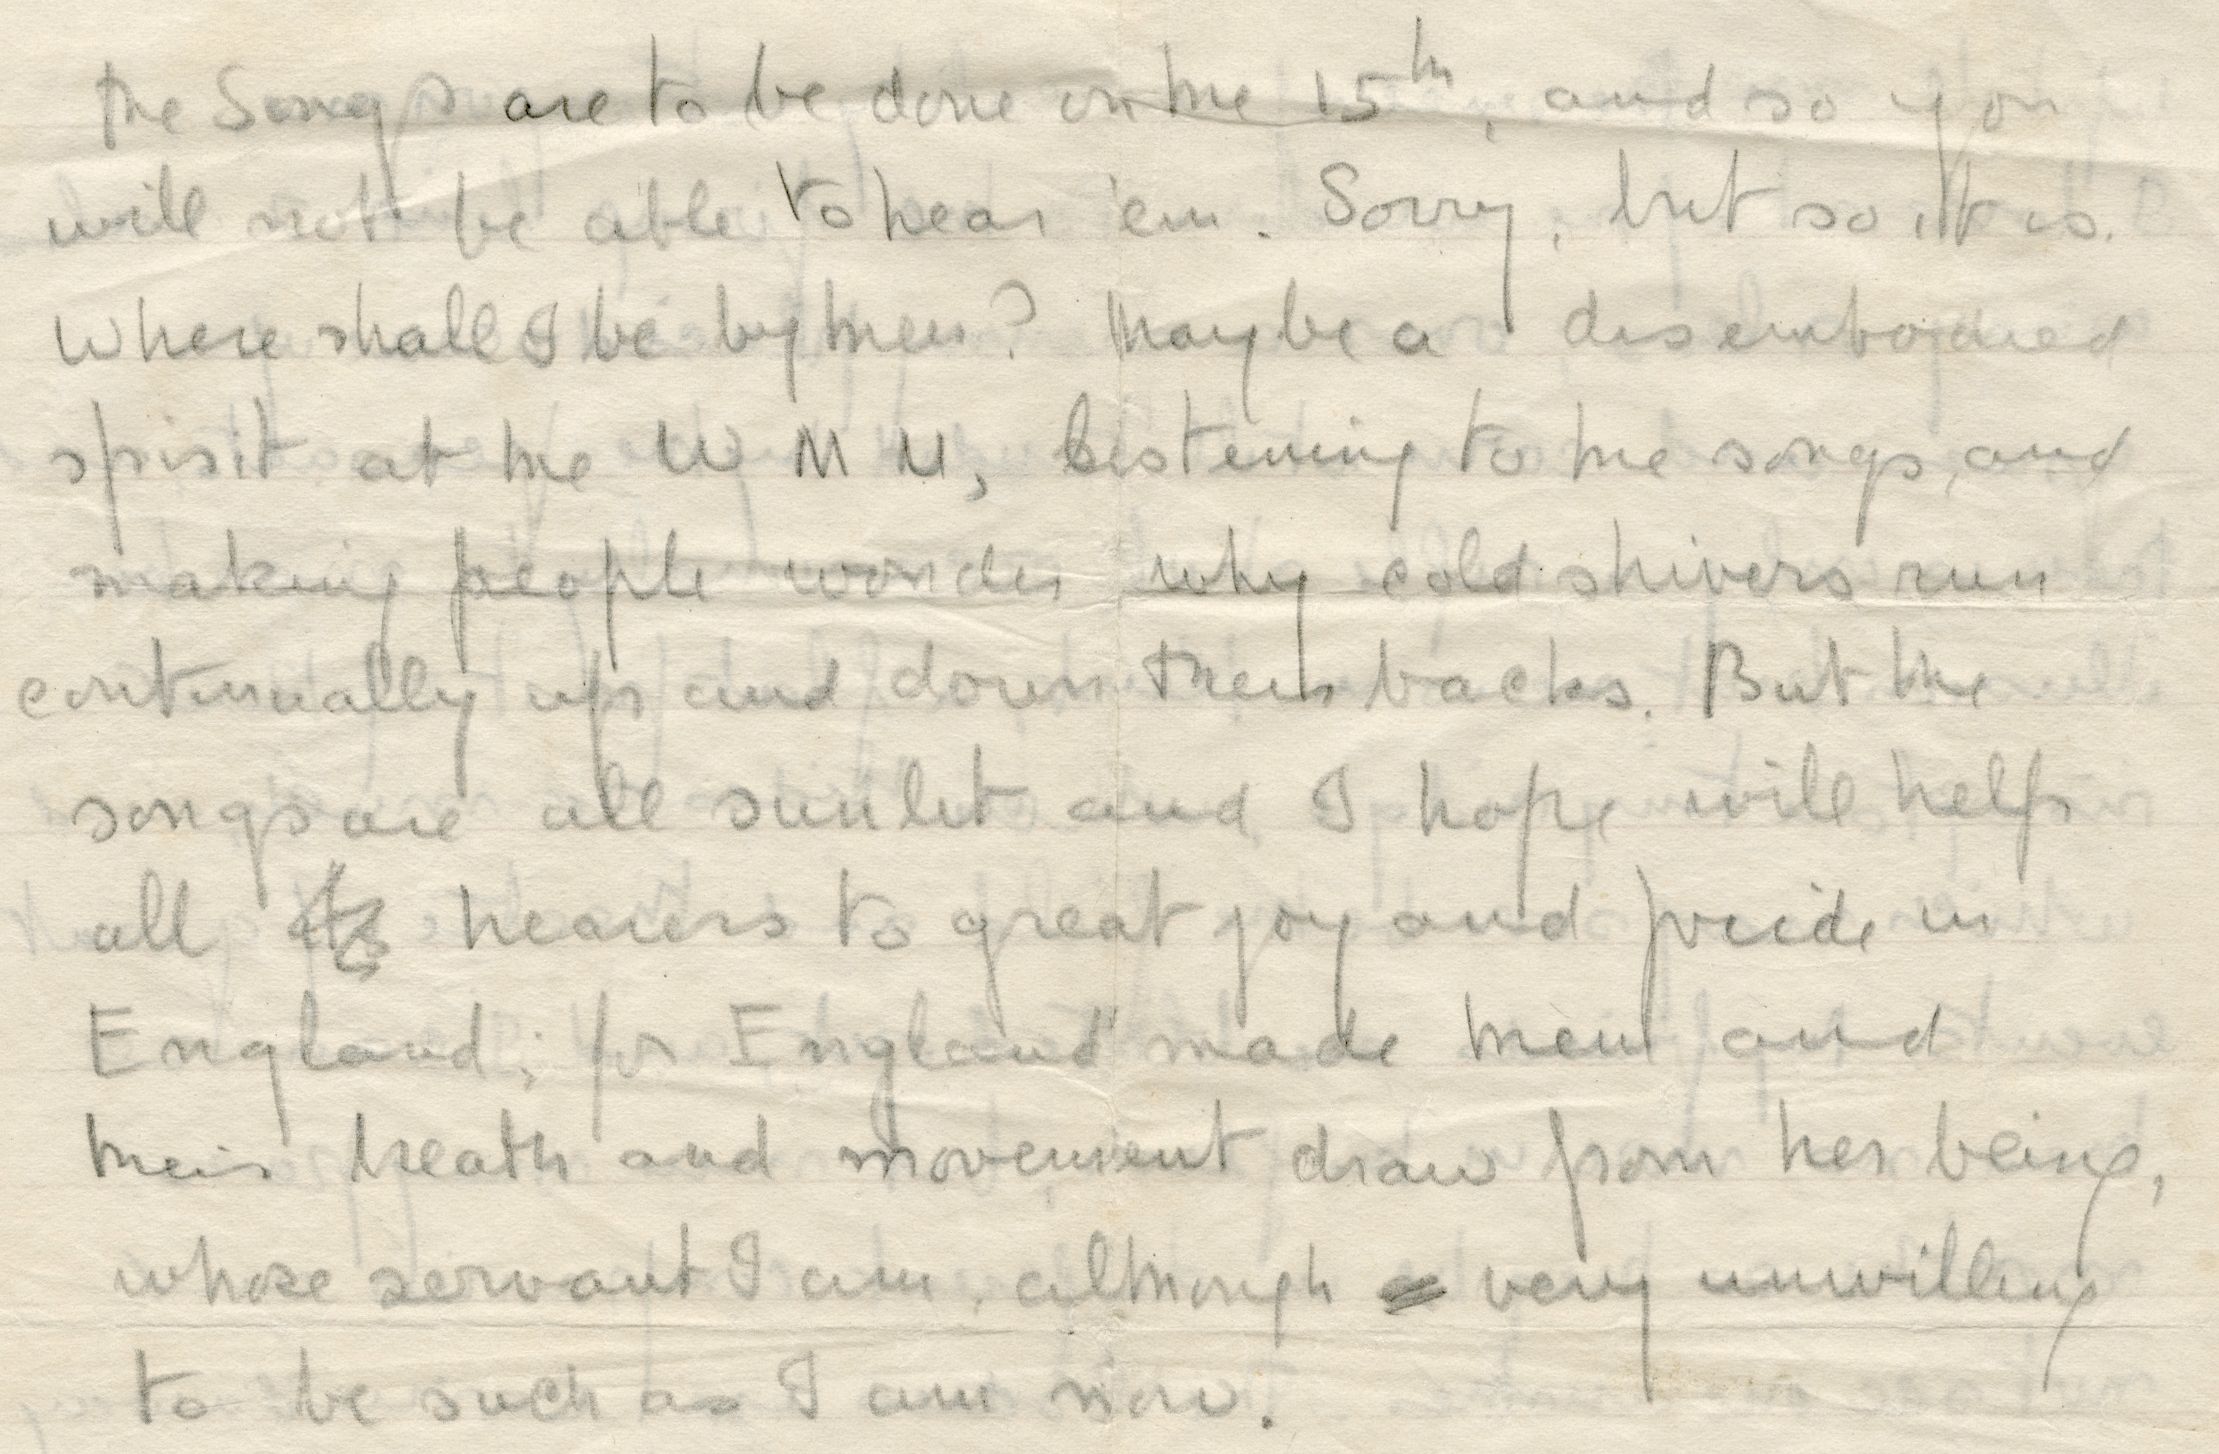 the Songs are to be done on the 15th, and so you
will not be able to hear 'em. Sorry, but so it is.
Where shall I be by then? Maybe a disembodied
spirit at the W M U, listening to the songs, and
making people wonder why cold shivers run
continually up and down their backs. But the
songs are all sunlit and I hope will help
all hearers to great joy and pride in
England; for England made them and
their breath and movement draw from her being,
whose servant I am, although very unwilling
to be such as I am now.